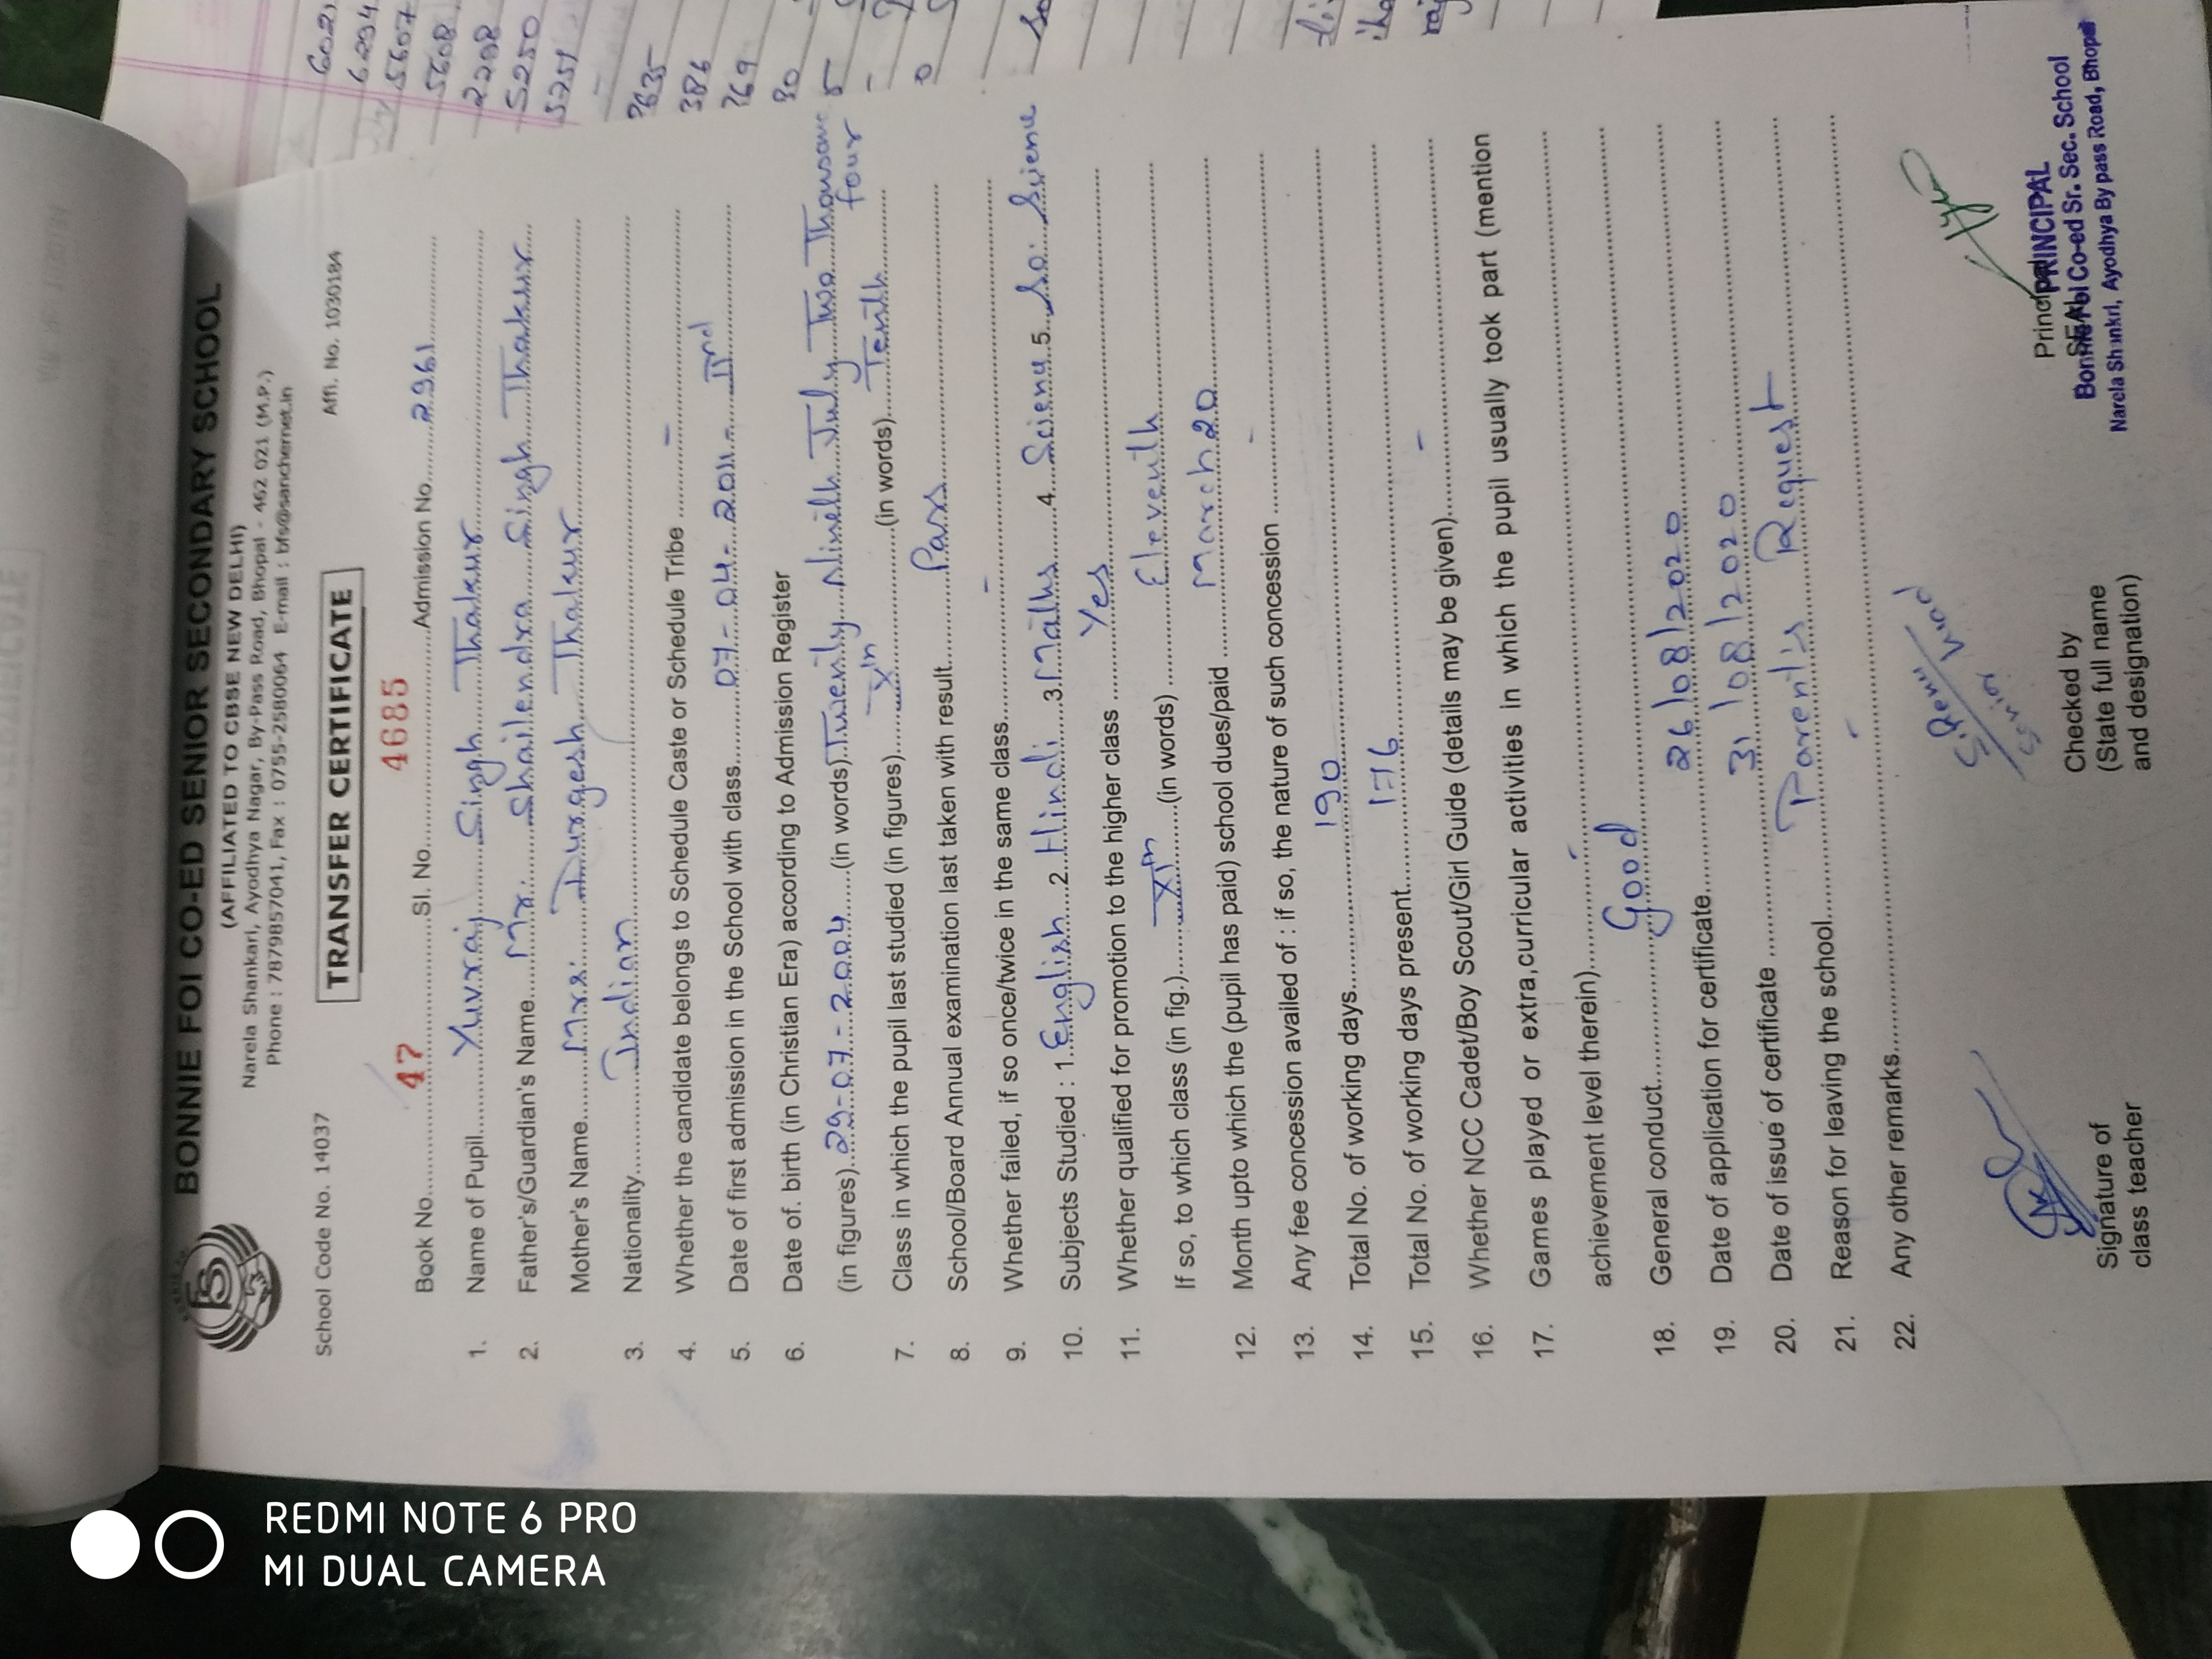 BONNIE FOI CO-ED SENIOR SECONDARY SCHOOL
(AFFILIATED TO CBSE NEW DELHI)
Narela Shankari, Ayodhya Nagar, By-Pass Road, Bhopal - 462 021 (M.P.)
Phone : 7879857041, Fax : 0755-2580064 E-mail : bfs@sanchernet.in
School Code No. 14037 Affi. No. 1030184
TRANSFER CERTIFICATE
Book No. 47 Sl. No. 4685 Admission No. 2961
1. Name of Pupil Yuvraj Singh Thakur
2. Father's/Guardian's Name Mr. Shailendra Singh Thakur
Mother's Name Mrs. Durgesh Thakur
3. Nationality Indian
4. Whether the candidate belongs to Schedule Caste or Schedule Tribe -
5. Date of first admission in the School with class 07-04-2011- IInd
6. Date of. birth (in Christian Era) according to Admission Register
(in figures) 29-07-2004 (in words) Twenty Nineth July Two Thousand four
7. Class in which the pupil last studied (in figures) Xth (in words) Tenth
8. School/Board Annual examination last taken with result Pass
9. Whether failed, if so once/twice in the same class -
10. Subjects Studied : 1. English 2. Hindi 3. Maths 4. Science 5. So. Science
11. Whether qualified for promotion to the higher class Yes
If so, to which class (in fig.) XIth (in words) Eleventh
12. Month upto which the (pupil has paid) school dues/paid March 20
13. Any fee concession availed of : if so, the nature of such concession -
14. Total No. of working days 190
15. Total No. of working days present 176
16. Whether NCC Cadet/Boy Scout/Girl Guide (details may be given) -
17. Games played or extra, curricular activities in which the pupil usually took part (mention
achievement level therein) -
18. General conduct Good
19. Date of application for certificate 26/08/2020
20. Date of issue of certificate 31/08/2020
21. Reason for leaving the school Parent's Request
22. Any other remarks -
Signature of
class teacher
Checked by
(State full name
and designation)
Principal
SEAL
PRINCIPAL
Bonnie Foi Co-ed Sr. Sec. School
Narela Shankri, Ayodhya By pass Road, Bhopal
6021
6294
5607
5608
2298
5250
5251
7635
386
769
REDMI NOTE 6 PRO
MI DUAL CAMERA